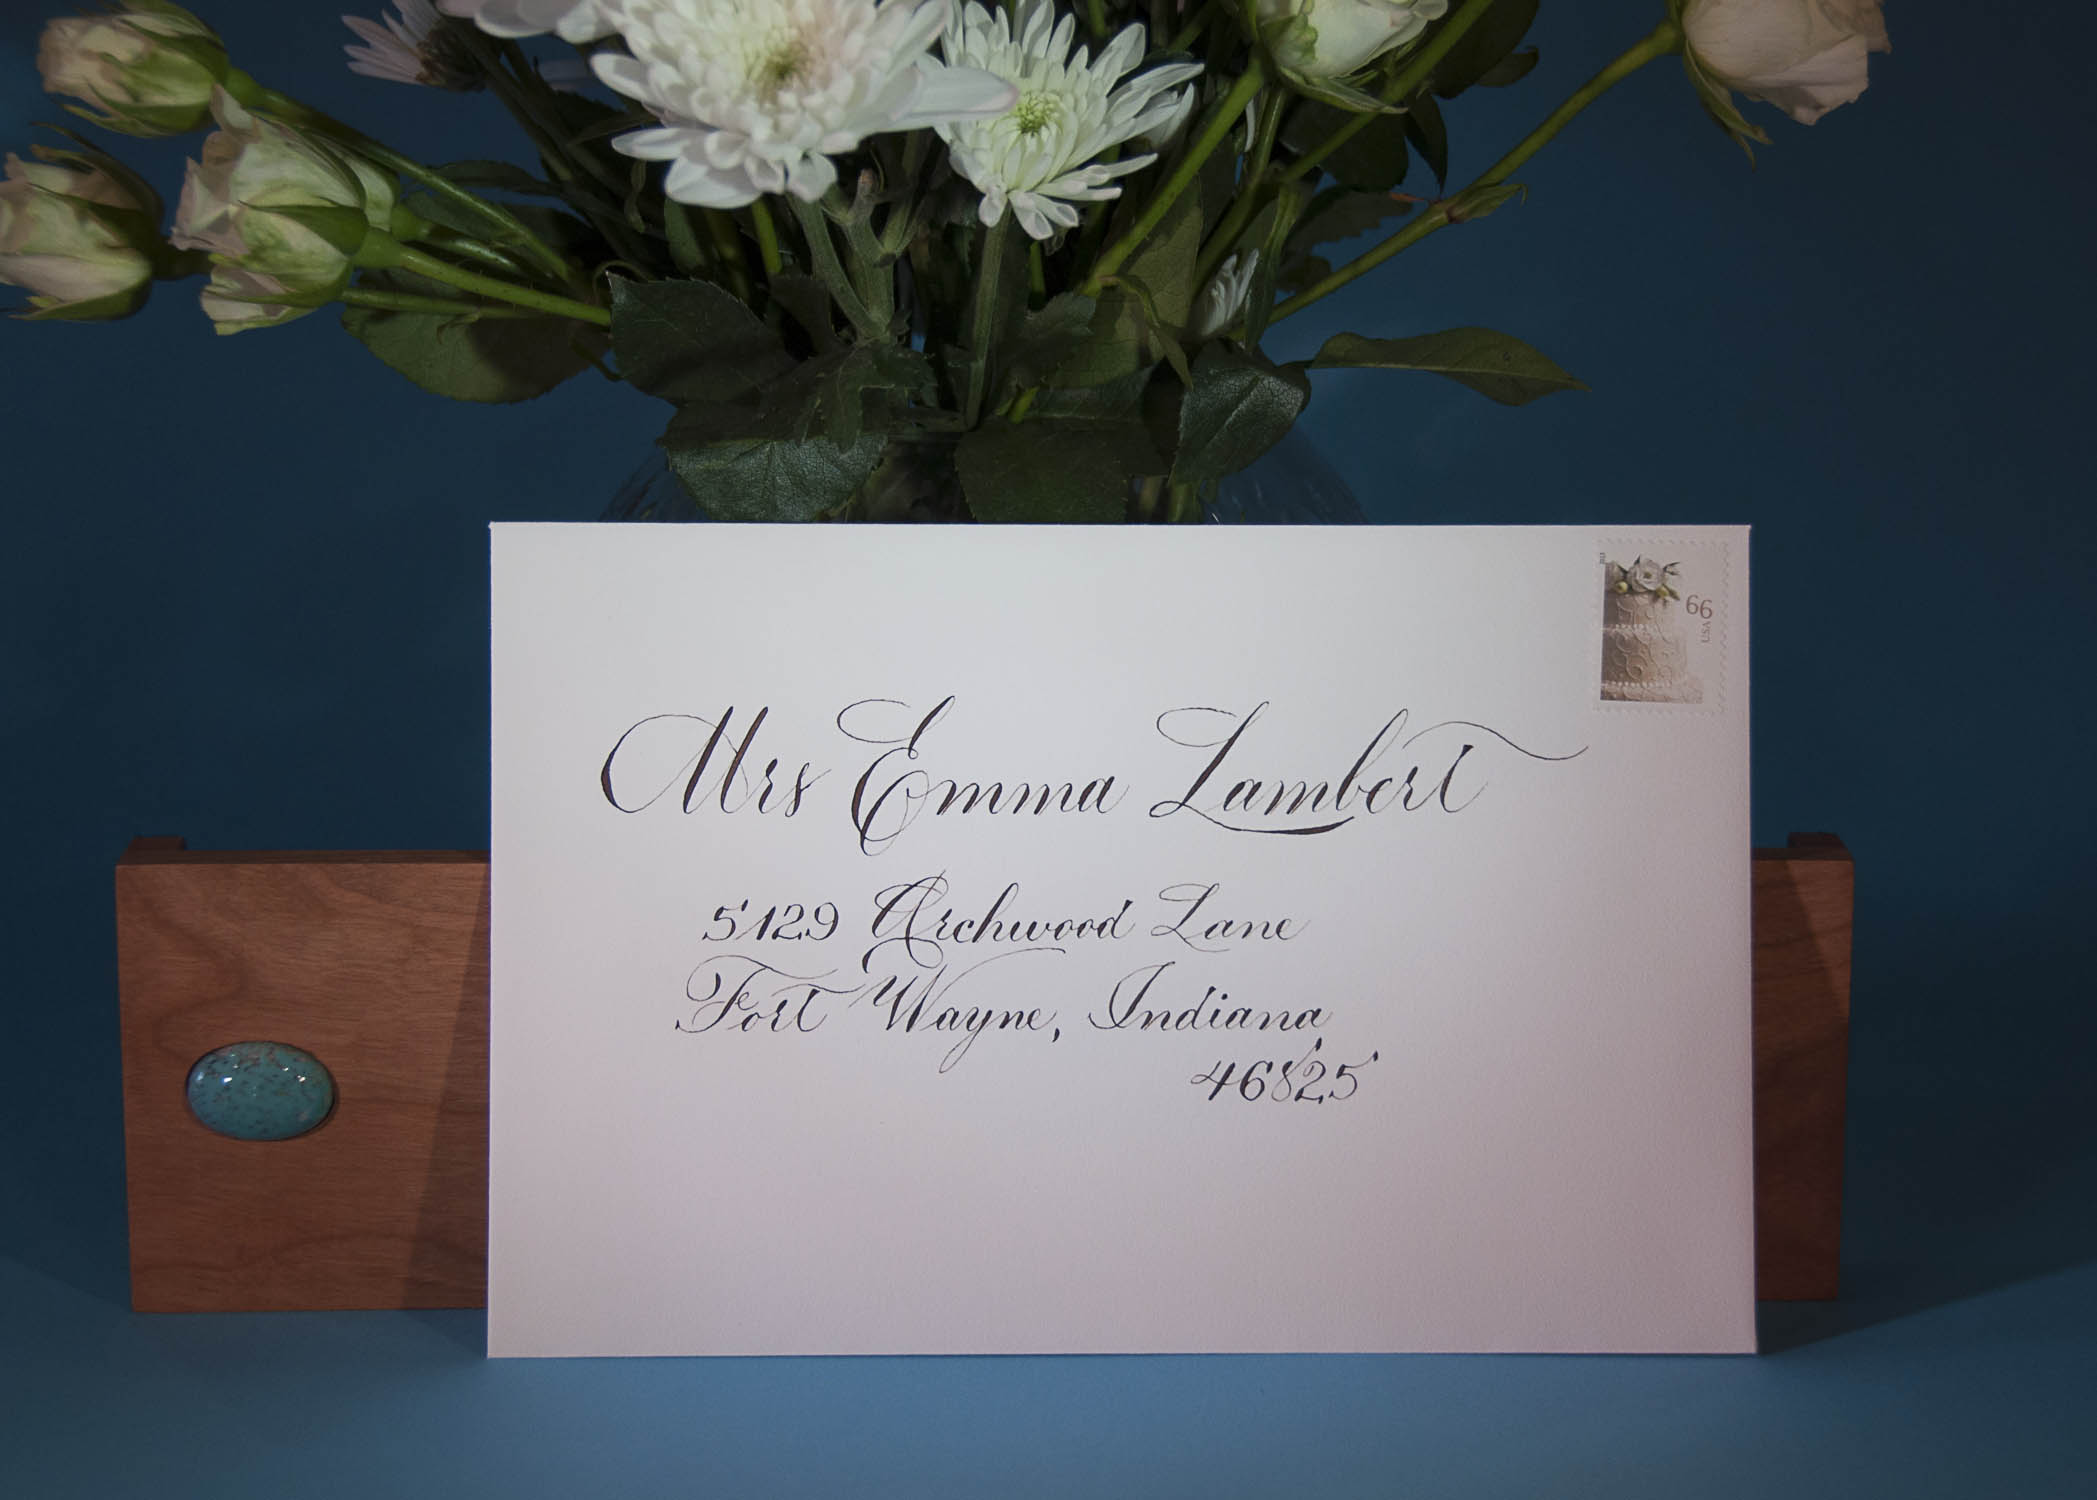 2013
66
USA
Mrs Emma Lambert
5129 Archwood Lane
Fort Wayne, Indiana
46825